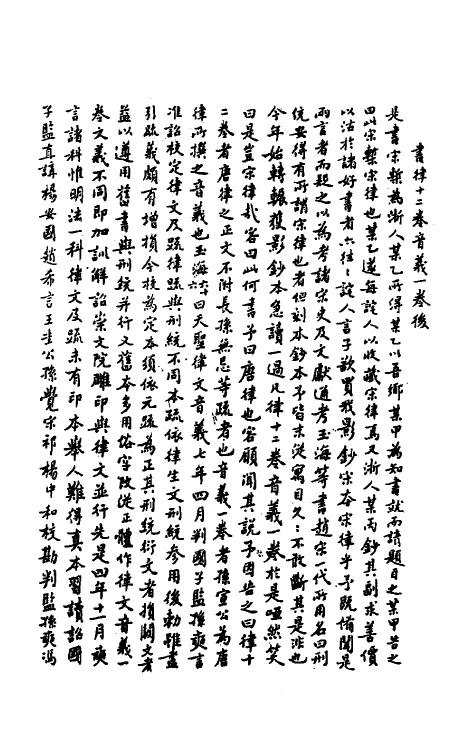 書律十二卷音義一卷後
是書宋槧為浙人某乙所得某乙以吾鄉某甲為知書就而請題目之某甲告之
曰此宋槧宋律也某乙遂每詫人以收藏宋律焉又浙人某丙鈔其副求善價
以沽於諸好書者亦往往詫人言子歆買我影鈔宋本宋律乎予既備聞是
兩言者而疑之以為考諸宋史及文獻通考玉海等書趙宋一代所用名曰刑
統安得有所謂宋律也者但刻本鈔本予皆未從寓目久之不敢斷其是非也
今年始轉輾獲影鈔本急讀一過凡律十二卷音義一卷於是啞然笑
曰是豈宋律哉客曰此何書予曰唐律也客願聞其說予因告之曰律十
二卷者唐律之正文不附長孫無忌等疏者也音義一卷者孫宣公為唐
律所撰之音義也玉海六六曰天聖律文音義七年四月判國子監孫奭言
准詔校定律文及疏律疏與刑統不同本疏依律生文刑統參用後勅雖盡
引疏義頗有增損今校為定本須依元疏為正其刑統衍文者損闕文者
益以遵用舊書與刑統並行又舊本多用俗字改從正體作律文音義一
卷文義不同即加訓解詔崇文院雕印與律文並行先是四年十一月奭
言諸科惟明法一科律文及疏未有印本舉人難得真本習讀詔國
子監直講楊安國趙希言王圭公孫覺宋祁楊中和校勘判監孫奭馮